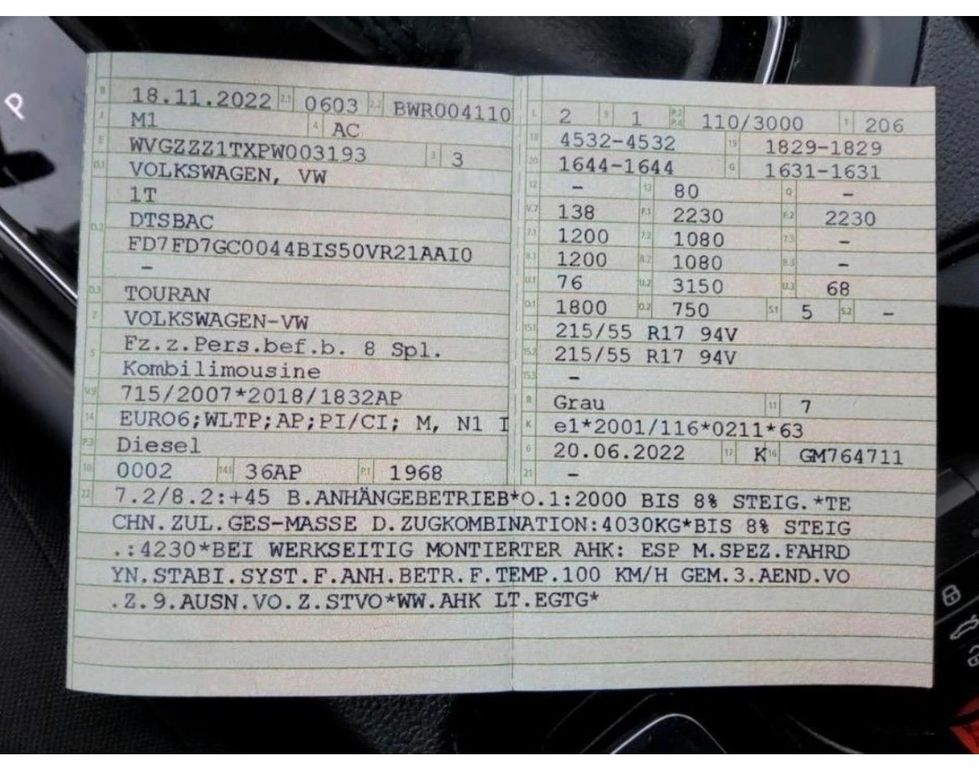 P
B 18.11.2022 2.1 0603 2.2 BWR004110
J M1 4 AC
E WVGZZZ1TXPW003193 3 3
D.1 VOLKSWAGEN, VW
1T
D.2 DTSBAC
FD7FD7GC0044BIS50VR21AAI0
–
D.3 TOURAN
2 VOLKSWAGEN-VW
5 Fz.z.Pers.bef.b. 8 Spl.
Kombilimousine
V.9 715/2007*2018/1832AP
14 EURO6;WLTP;AP;PI/CI; M, N1 I
P.3 Diesel
10 0002 14.1 36AP P.1 1968
L 2 9 1 P.2 P.4 110/3000 T 206
18 4532-4532 19 1829-1829
20 1644-1644 G 1631-1631
12 – 13 80 Q –
V.7 138 F.1 2230 F.2 2230
7.1 1200 7.2 1080 7.3 –
8.1 1200 8.2 1080 8.3 –
U.1 76 U.2 3150 U.3 68
O.1 1800 O.2 750 S.1 5 S.2 –
15.1 215/55 R17 94V
15.2 215/55 R17 94V
15.3 –
R Grau 11 7
K e1*2001/116*0211*63
6 20.06.2022 17 K 16 GM764711
21 –
22 7.2/8.2:+45 B.ANHÄNGEBETRIEB*O.1:2000 BIS 8% STEIG.*TE
CHN.ZUL.GES-MASSE D.ZUGKOMBINATION:4030KG*BIS 8% STEIG
.:4230*BEI WERKSEITIG MONTIERTER AHK: ESP M.SPEZ.FAHRD
YN.STABI.SYST.F.ANH.BETR.F.TEMP.100 KM/H GEM.3.AEND.VO
.Z.9.AUSN.VO.Z.STVO*WW.AHK LT.EGTG*